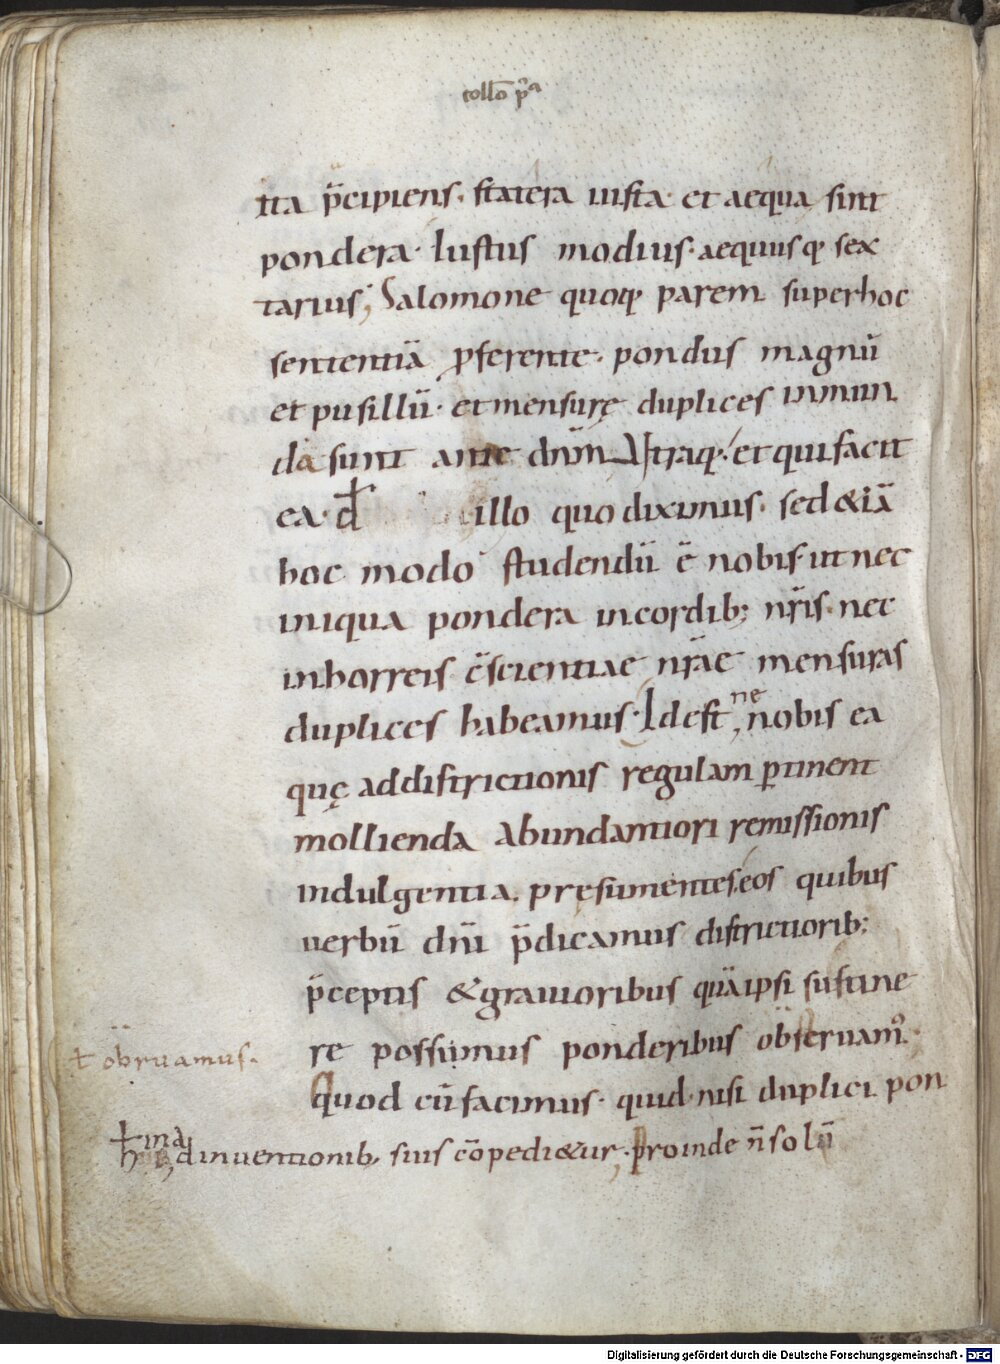 collo̅ p̅ᵃ
ita p̅cipiens. statera iusta. et aequa sint
pondera. Iustus modius. aequusq; sex
tarius; Salomone quoq; parem superhoc
sententiā ꝓferente. pondus magnū
et pusillū. et mensurę duplices inmun
da sunt ante dn̅m Utraq;. et qui facit
ea. đ illo quo diximus. sed &iā
hoc modo studendū ē nobis. ut nec
iniqua pondera in cordib; nr̅is. nec
in horreis c̅scientiae nr̅ae mensuras
duplices habeamus. Id est, ne nobis ea
quę ad districtionis regulam ꝑtinent
mollienda abundantiori remissionis
indulgentia. pręsumentes eos quibus
uerbū dn̅i p̅dicamus districtiorib;
p̅ceptis & grauioribus quā ipsi sustine
re possumus ponderibus obseruam᷒.
ł obruamus.
Quod cū facimus. quid nisi duplici pon
ł in a
dinuentionib, suis co̅pedi&ur. Proinde n̅ solū
Digitalisierung gefördert durch die Deutsche Forschungsgemeinschaft - DFG